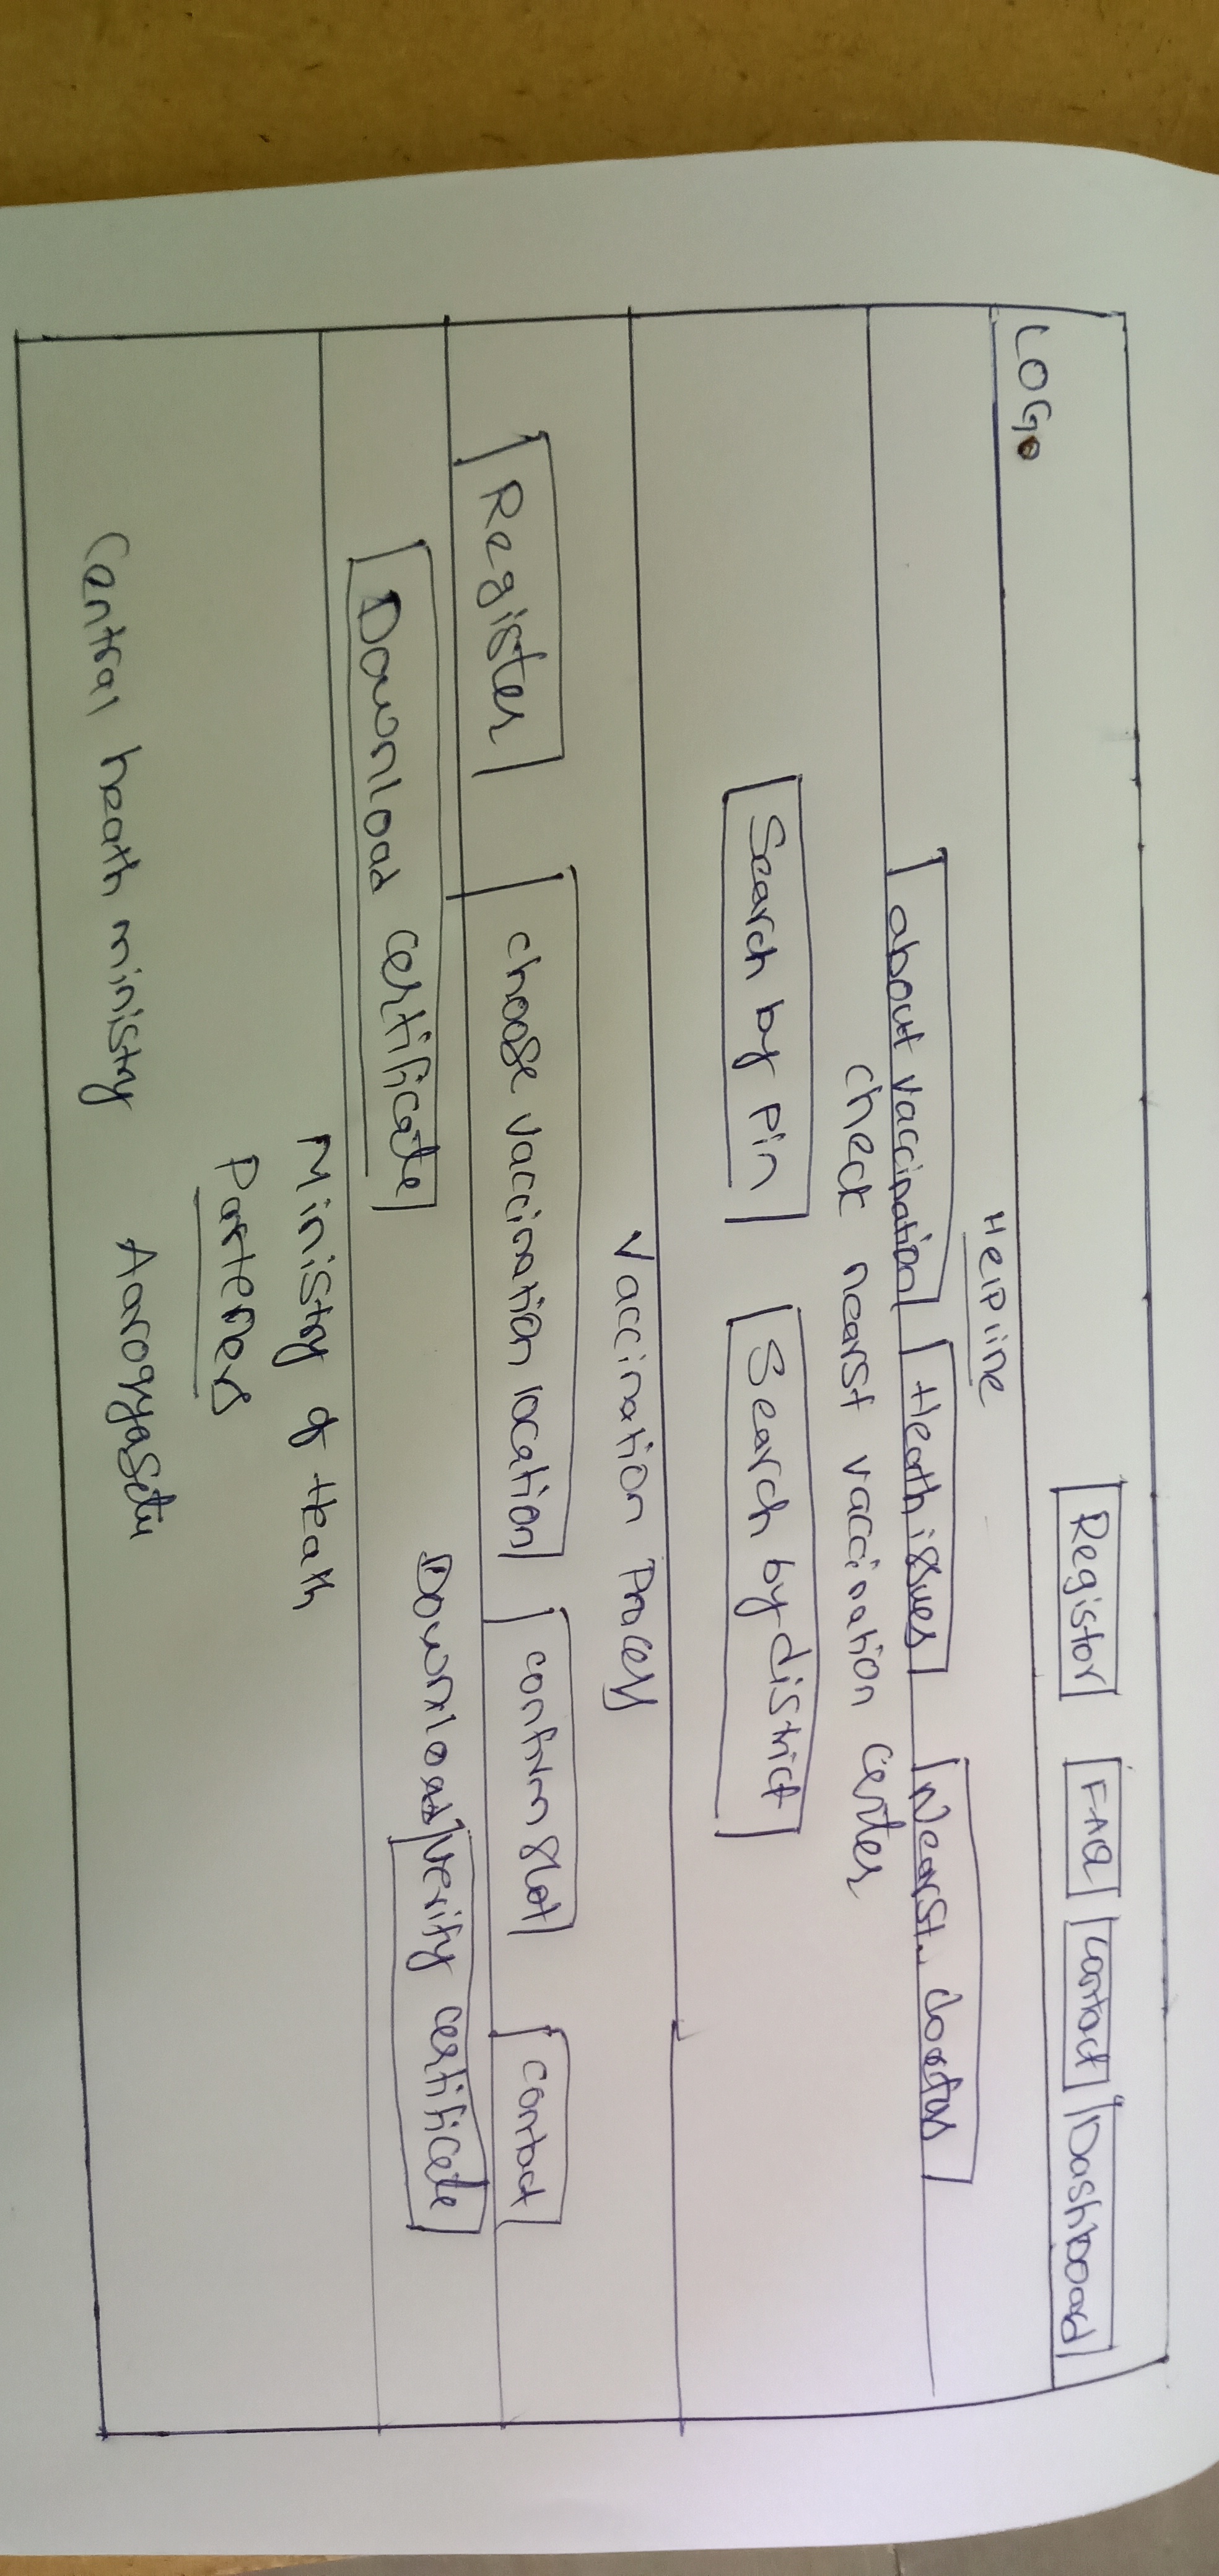 LOGO
Registor FAQ Contact Dashboard
Helpline
about vaccination Heath issues Nearst doctor
check nearst vaccination center
Search by pin Search by district
Vaccination Process
Register choose vaccination location confirm slot contact
Download verify certificate
Download certificate
Ministry of Heath
Parteners
Central heath ministry AarogyaSetu